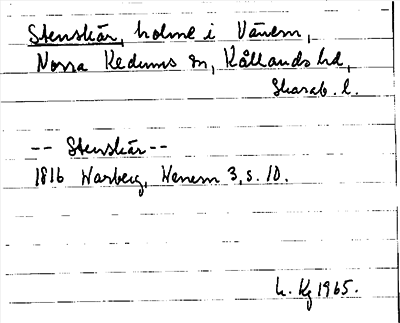 Stenskär, holme i Vänern,
Norra Kedums sn, Kållands hd,
Skarab. l.
-- Stenskär --
1816 Warberg, Wenern 3, s. 10.
L. Kg 1965.